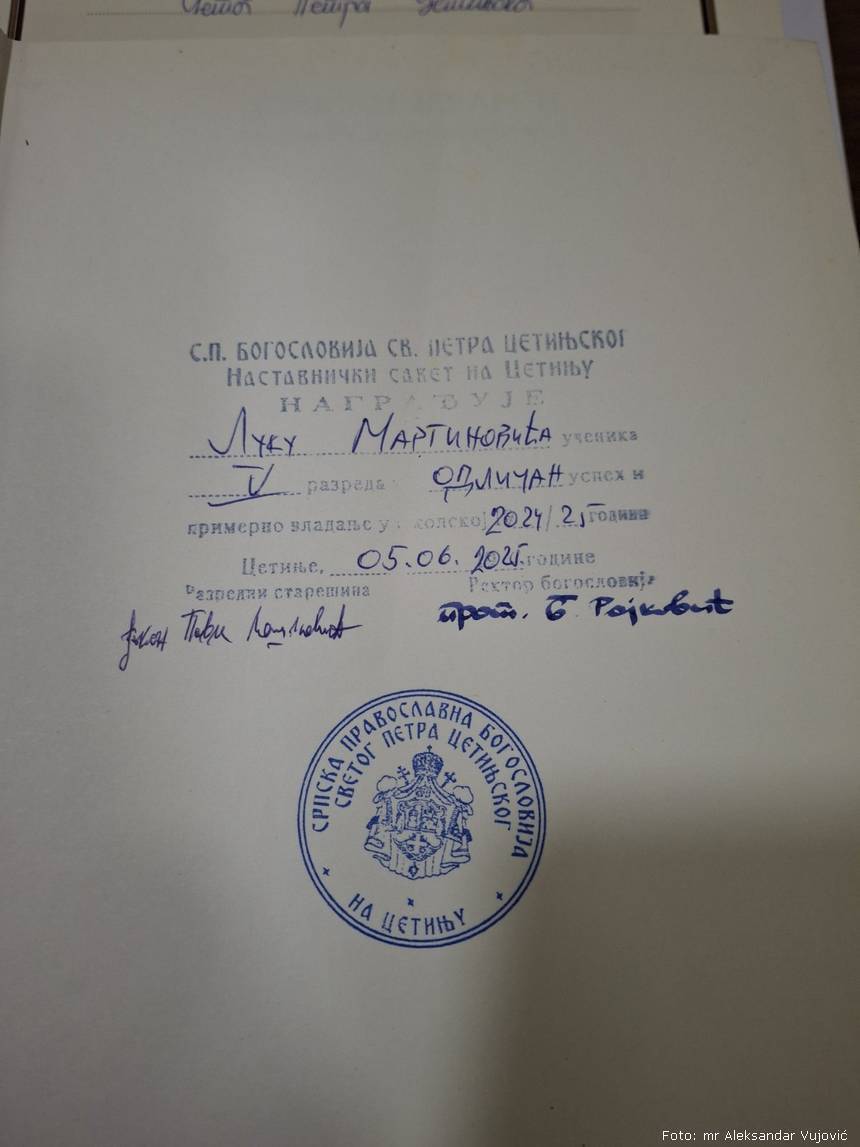 Петра
С.П. БОГОСЛОВИЈА СВ. ПЕТРА ЦЕТИЊСКОГ
НАСТАВНИЧКИ САВЕТ НА ЦЕТИЊУ
НАГРАЂУЈЕ
Луку Мартиновића ученика
IV разреда одличан успех и
примерно владање у школској 2024/25 године
Цетиње, 05.06.2025. године
Разредни старешина Ректор богословије
прот. Рајковић
СРПСКА ПРАВОСЛАВНА БОГОСЛОВИЈА
СВЕТОГ ПЕТРА ЦЕТИЊСКОГ
НА ЦЕТИЊУ
Foto: mr Aleksandar Vujović